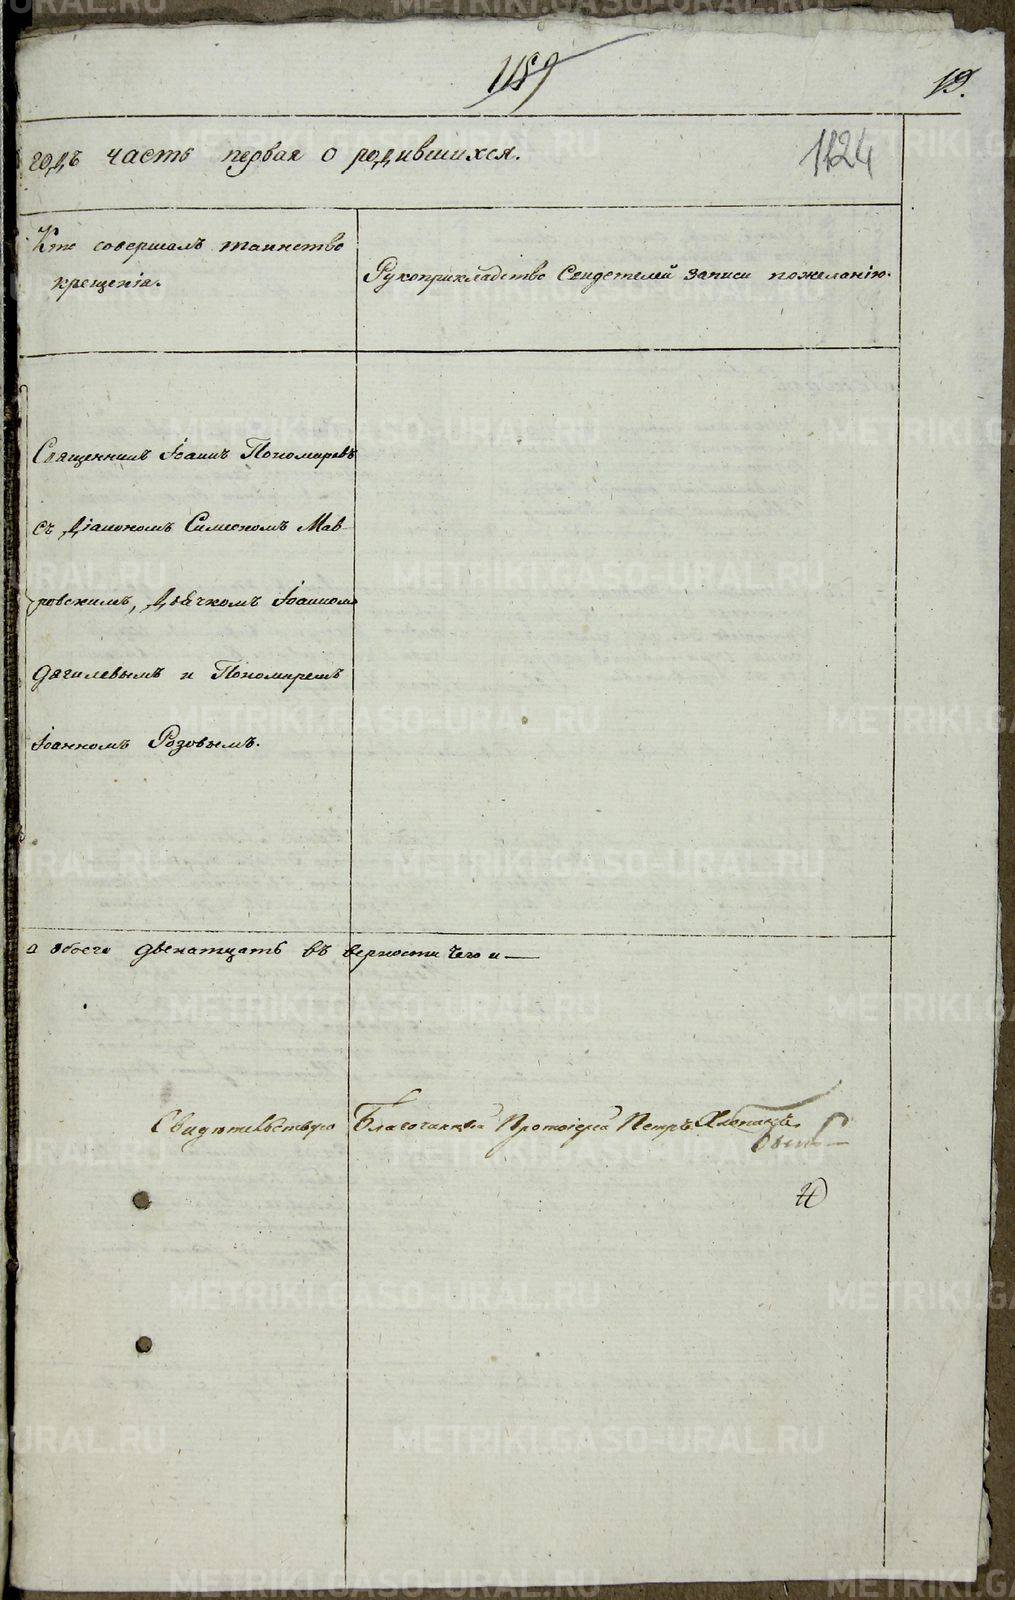 1189
19.
1124
годъ часть первая о родившихся.
Кто совершалъ таинство
крещенія.
Рукоприкладство Свидетелей записи пожеланію.
Священникъ Іоаннъ Пономаревъ
съ Діакономъ Симеономъ Мав-
ровскимъ, Дьячкомъ Іоанномъ
Дягилевымъ и Пономаремъ
Іоанномъ Розовымъ.
а обоего двенатцать въ верности чего и—
Свидѣтельствую Благочинный Протоіерей Петръ
METRIKI.GASO-URAL.RU